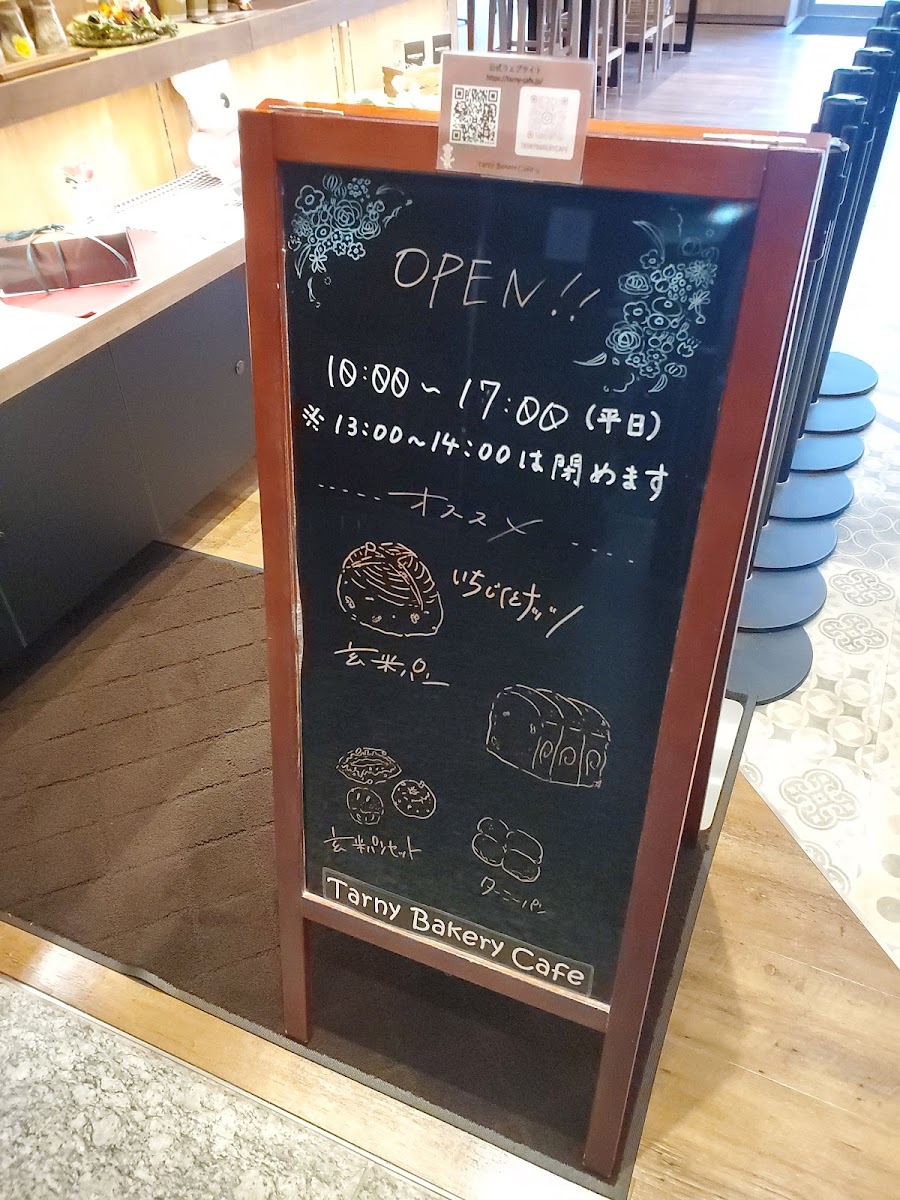 公式ウェブサイト
https://tarny-cafe.jp/
TARNYBAKERYCAFE
Tarny Bakery Cafe
OPEN!!
10:00～17:00(平日)
※13:00～14:00は閉めます
オススメ
いちじくとナッツ
玄米パン
玄米パンセット
ターニーパン
Tarny Bakery Cafe